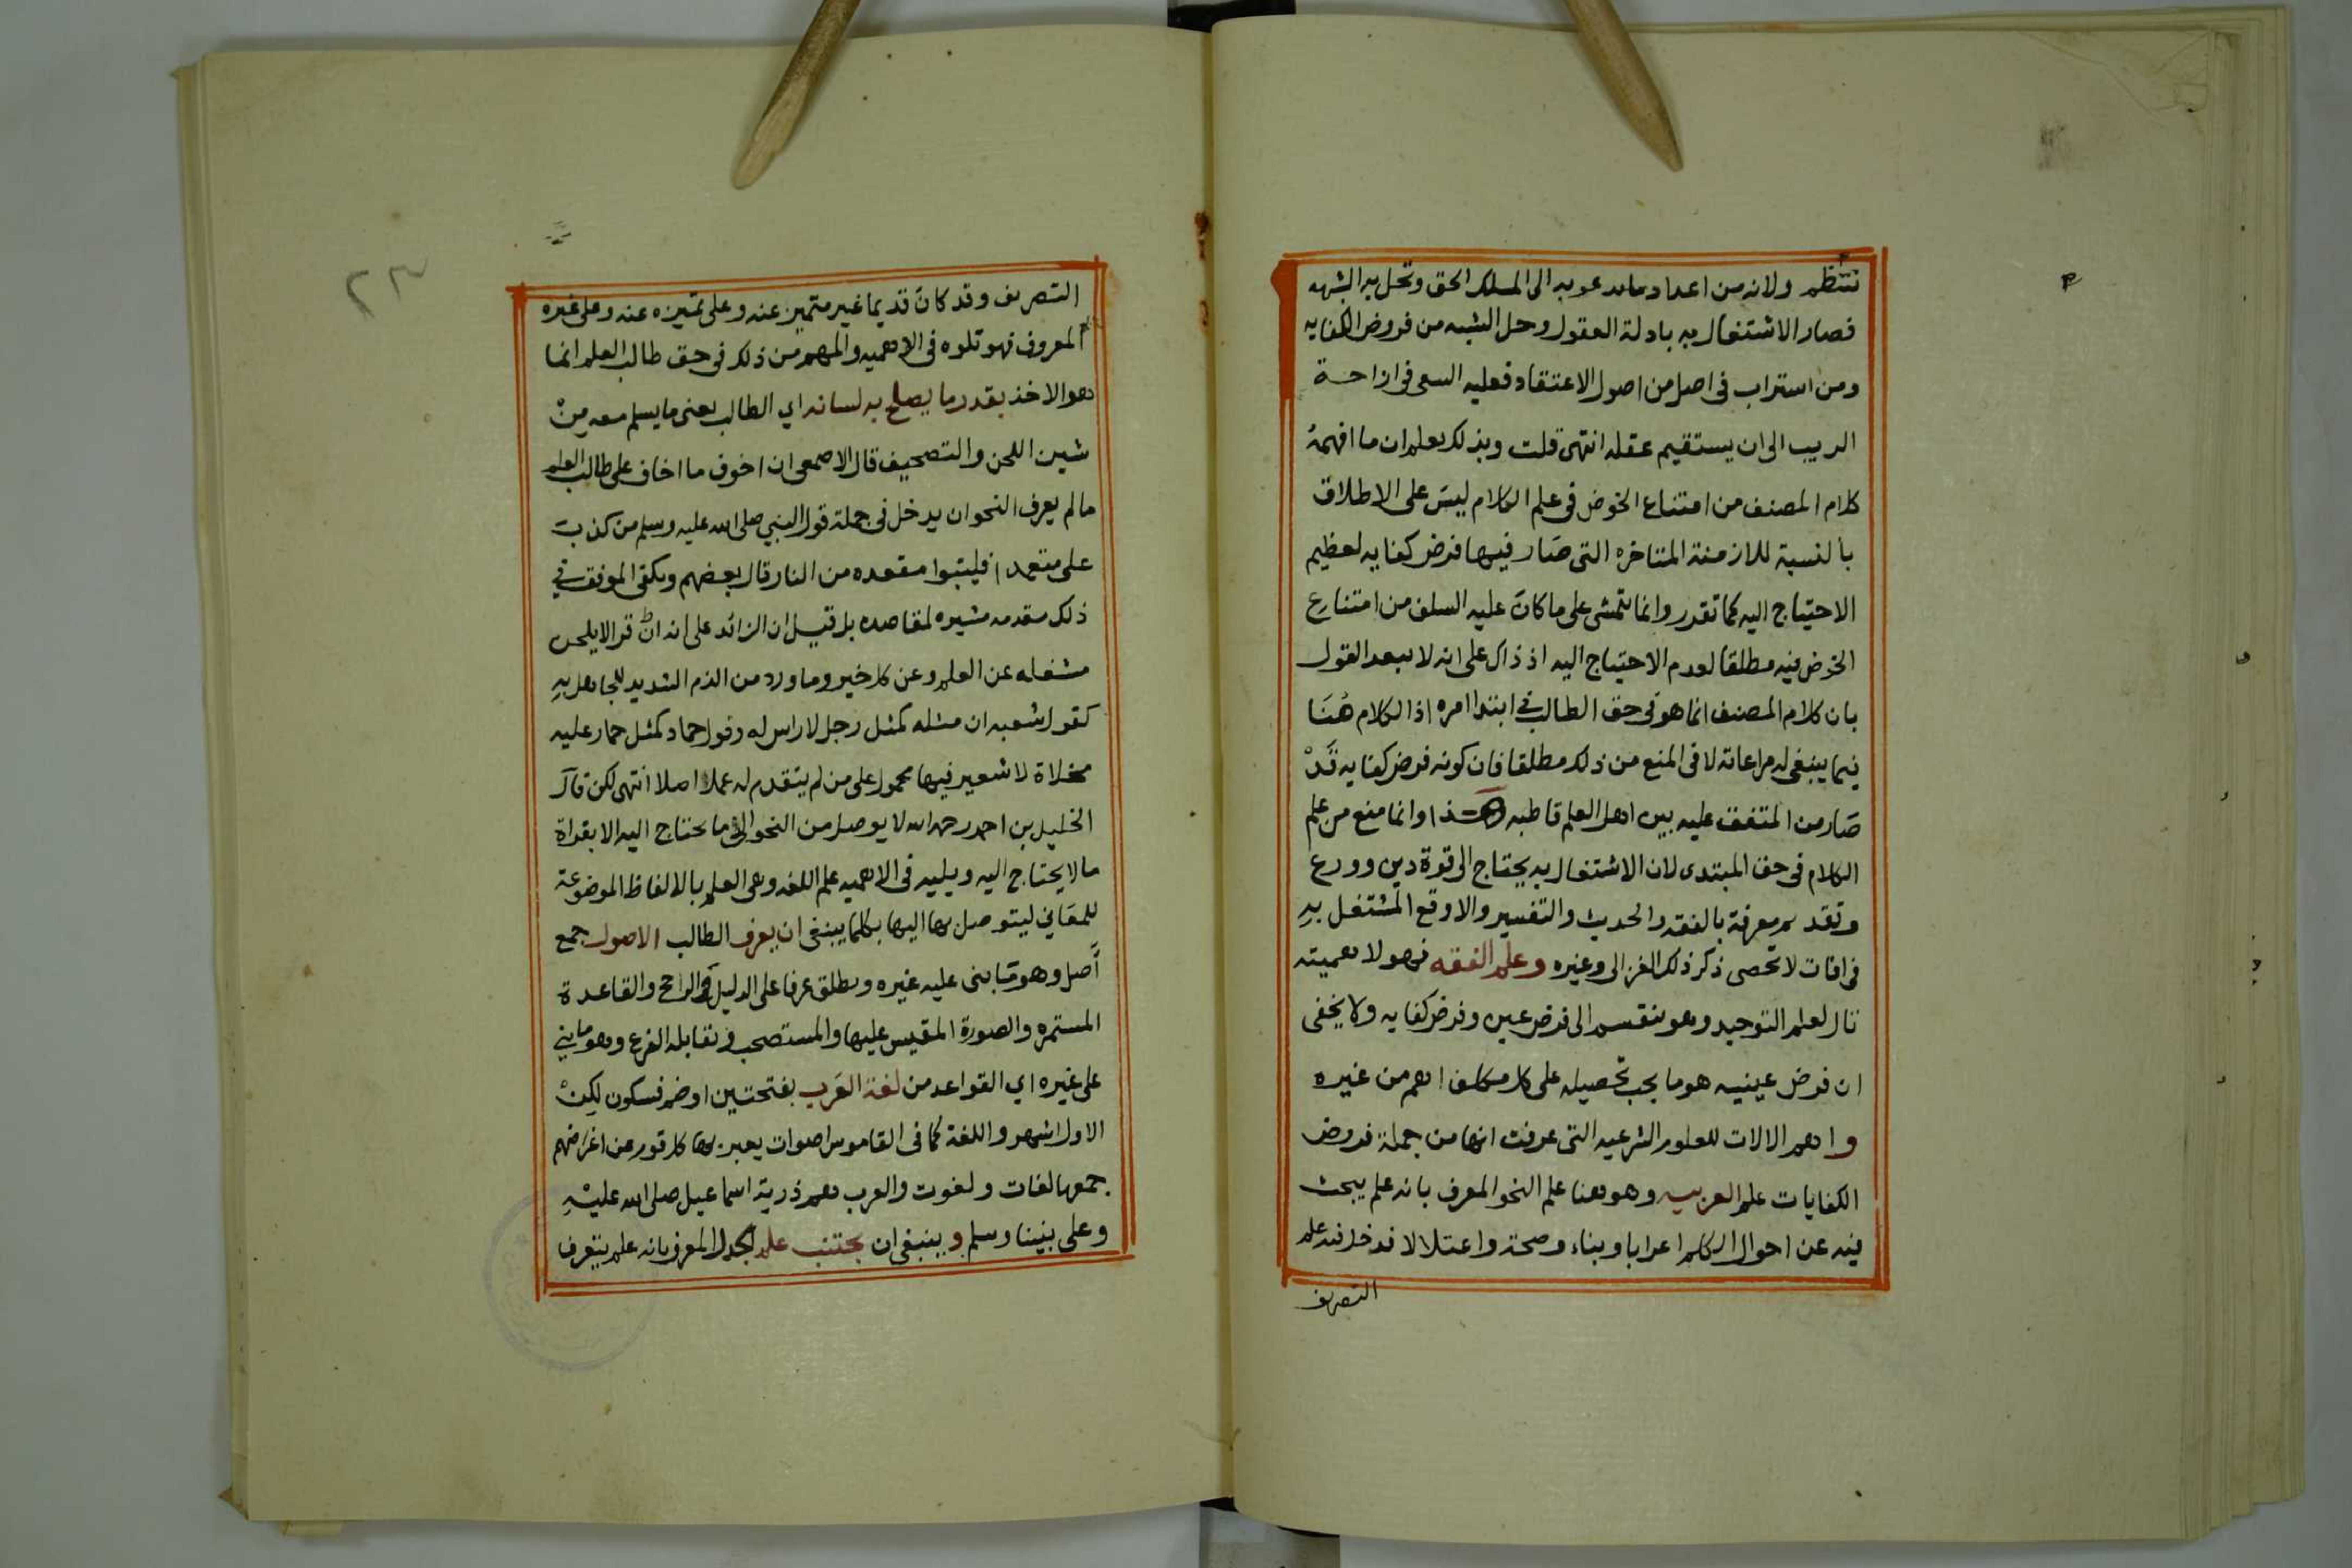 تنتظم ولانه من اعداد ما يدعو به الى المسلك الحق وتحل به الشبهه
فصار الاشتغال به بادلة العقول وحل الشبه من فروض الكفايه
ومن استراب فى اصل من اصول الاعتقاد فعليه السعى فى ازاحة
الريب الى ان يستقيم عقله انتهى قلت وبذلك يعلم ان ما افهمه
كلام المصنف من امتناع الخوض فى علم الكلام ليس على الاطلاق
بالنسبة للازمنة المتاخره التى صار فيها فرض كفايه لعظيم
الاحتياج اليه كما تقدر وانما يتمشى على ما كان عليه السلف من امتناع
الخوض فيه مطلقا لعدم الاحتياج اليه اذ ذاك على انه لا يبعد القول
بان كلام المصنف انما هو فى حق الطالب في ابتدا امره اذ الكلام هنا
فيما ينبغى له مراعاته لا فى المنع من ذلك مطلقا فان كونه فرض كفايه قد
صار من المتفق عليه بين اهل العلم قاطبه هذا وانما منع من علم
الكلام فى حق المبتدى لان الاشتغال به يحتاج الى قوة دين وورع
وتقدم معرفة بالفقه والحديث والتفسير والا وقع المشتغل به
فى افات لا تحصى ذكر ذلك الغزالى وغيره وعلم الفقه فهو لاهميته
تال لعلم التوحيد وهو ينقسم الى فرض عين وفرض كفايه ولا يخفى
ان فرض عينيه هو ما يجب تحصيله على كل مكلف اهم من غيره
واهم الالات للعلوم الشرعيه التى عرفت انها من جملة فروض
الكفايات علم العربيه وهو هنا علم النحو المعرف بانه علم يبحث
فيه عن احوال الكلم اعرابا وبناء وصحة واعتلالا فدخل فيه علم
التصريف
٢٣
التصريف وقد كان قديما غير متميز عنه وعلى تميزه عنه وعلى غيره
المعروف فهو تلوه فى الاهميه والمهم من ذلك فى حق طالب العلم انما
هو الاخذ بقدر ما يصلح به لسانه اي الطالب يعنى ما يسلم معه من
شين اللحن والتصحيف قال الاصمعى ان اخوف ما اخاف على طالب العلم
ما لم يعرف النحو ان يدخل فى جملة قول النبي صلى الله عليه وسلم من كذب
على متعمدا فليتبوا مقعده من النار قال بعضهم ويكفى الموفق في
ذلك مقدمه مشيره لمقاصده بل قيل ان الزائد على انه ان قرا لا يلحن
مشغله عن العلم وعن كل خير وما ورد من الذم الشديد للجاهل به
كقول شعبه ان مثله كمثل رجل لا راس له وقول حماد كمثل حمار عليه
مخلاة لا شعير فيها محمول على من لم يتقدم له عمل اصلا انتهى لكن قال
الخليل بن احمد رحمه الله لا يوصل من النحو الى ما يحتاج اليه الا بقراة
ما لا يحتاج اليه ويليه فى الاهميه علم اللغه وهى العلم بالالفاظ الموضوعة
للمعاني ليتوصل بها اليها بكلما ينبغى ان يعرف الطالب الاصول جمع
اصل وهو ما بنى عليه غيره ويطلق عرفا على الدليل والراجح والقاعدة
المستمره والصورة المقيس عليها والمستصحب ويقابله الفرع وهو ما بني
على غيره اي القواعد من لغة العرب بفتحتين او ضم فسكون لكن
الاول اشهر واللغة كما فى القاموس اصوات يعبر بها كل قوم عن اغراضهم
جمعها لغات ولغوت والعرب هم ذرية اسماعيل صلى الله عليه
وعلى نبينا وسلم وينبغى ان يجتنب علم الجدل المعرف بانه علم يتعرف